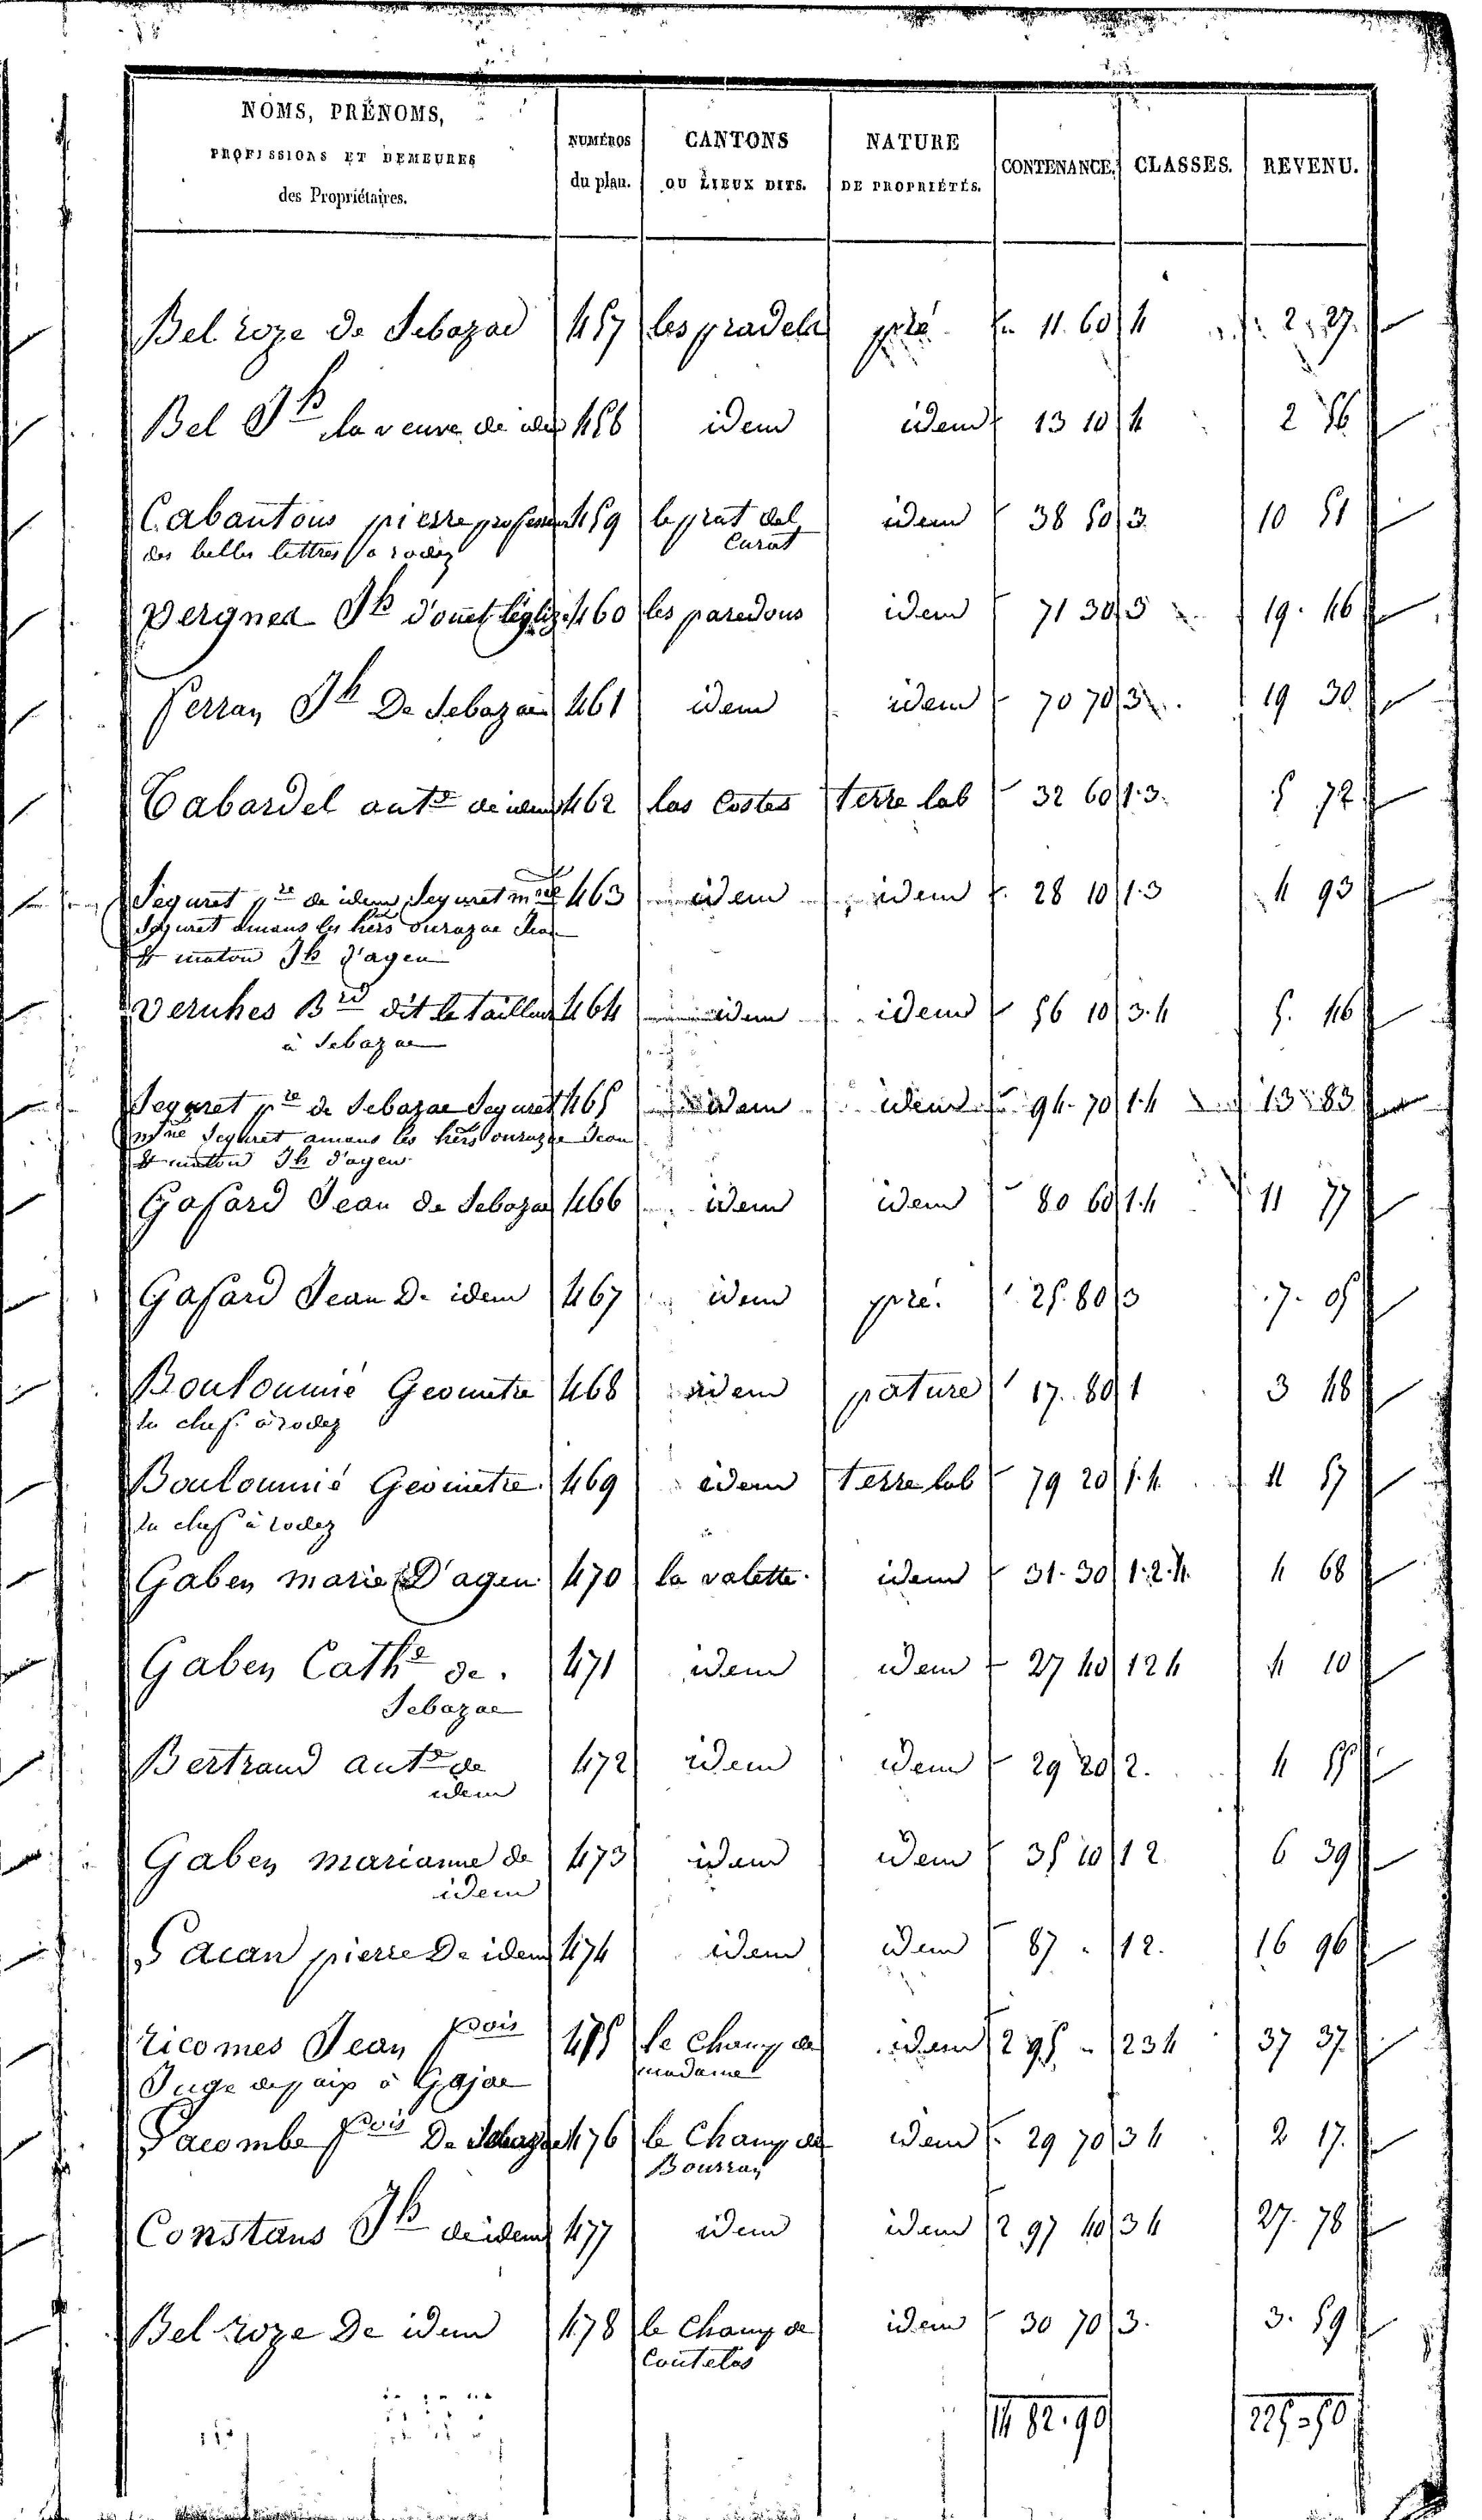 NOMS, PRÉNOMS, PROFESSIONS ET DEMEURES des Propriétaires. NUMÉROS du plan. CANTONS OU LIEUX DITS. NATURE DE PROPRIÉTÉS. CONTENANCE. CLASSES. REVENU.
Bel roze de Sebazac 457 les pradels pré 11. 60 4 2, 27.
Bel Jh la veuve de idem 458 idem idem 13 10 4 2 56
Cabantous pierre professeur 459 le prat del idem 38 50 3. 10 51
des belles lettres a rodez Curat
Vergnes Jh d'onet l'églize 460 les paredous idem 71 30 3 19. 46
Ferran Jh De Sebazac 461 idem idem 70 70 3 19 30
Cabardel ant.e de idem 462 las Costes terre lab 32 60 1.3. 5 72
Seguret p.re de idem Seguret 463 idem idem 28 10 1.3 4 93
Seguret amans les hers Jean
Jh d'agen
Veruhes B.rd dit le tailleur 464 idem idem 56 10 3.4 5. 46
à Sebazac
Seguret p.re de Sebazac Seguret 465 idem idem 94. 70 1.4 13 83
Seguret amans les hers Jean
Jh d'agen
Gafard Jean de Sebazac 466 idem idem 80 60 1.4 11 77
Gafard Jean De idem 467 idem pré. 25. 80 3 7. 05
Bouloumié Geometre 468 idem pature 17. 80 1 3 48
en chef à rodez
Bouloumié Géometre 469 idem terre lab 79 20 1.4. 11 57
en chef à rodez
Gaben marie D'agen 470 la valette. idem 31. 30 1.2.4. 4 68
Gaben Cath.e de. 471 idem idem 27 40 1 2 4 4 10
Sebazac
Bertrand ant.e de 472 idem idem 29 20 2. 4 55
idem
Gaben marianne de 473 idem idem 35 10 1 2 6 39
idem
Lacan pierre De idem 474 idem idem 87 " 1 2. 16 96
ricomes Jean fçois 475 le Champ de idem 2 95 " 2 3 4 37 37
Juge de paix à Gajac madame
Lacombe fçois De Sebazac 476 le Champ de idem 29 70 3 4 2 17.
Bourran
Constans Jh de idem 477 idem idem 2 97 40 3 4 27. 78
Bel roze De idem 478 le Champ de idem 30 70 3. 3. 59
Coutelas
14 82. 90 225 = 50